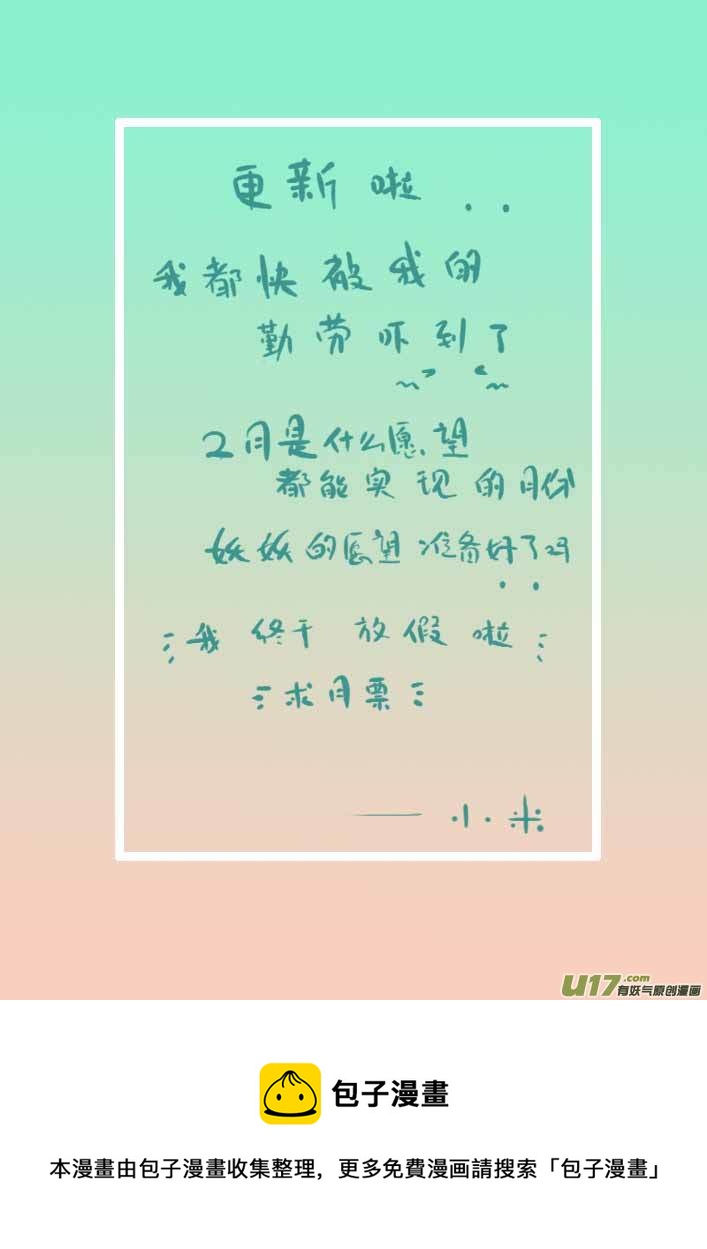 更新啦..
我都快被我的
勤劳吓到了
2月是什么愿望
都能实现的月份
妖妖的愿望准备好了吗
我终于放假啦
求月票
——小米
U17.com
有妖气原创漫画
包子漫畫
本漫畫由包子漫畫收集整理，更多免費漫画請搜索「包子漫畫」